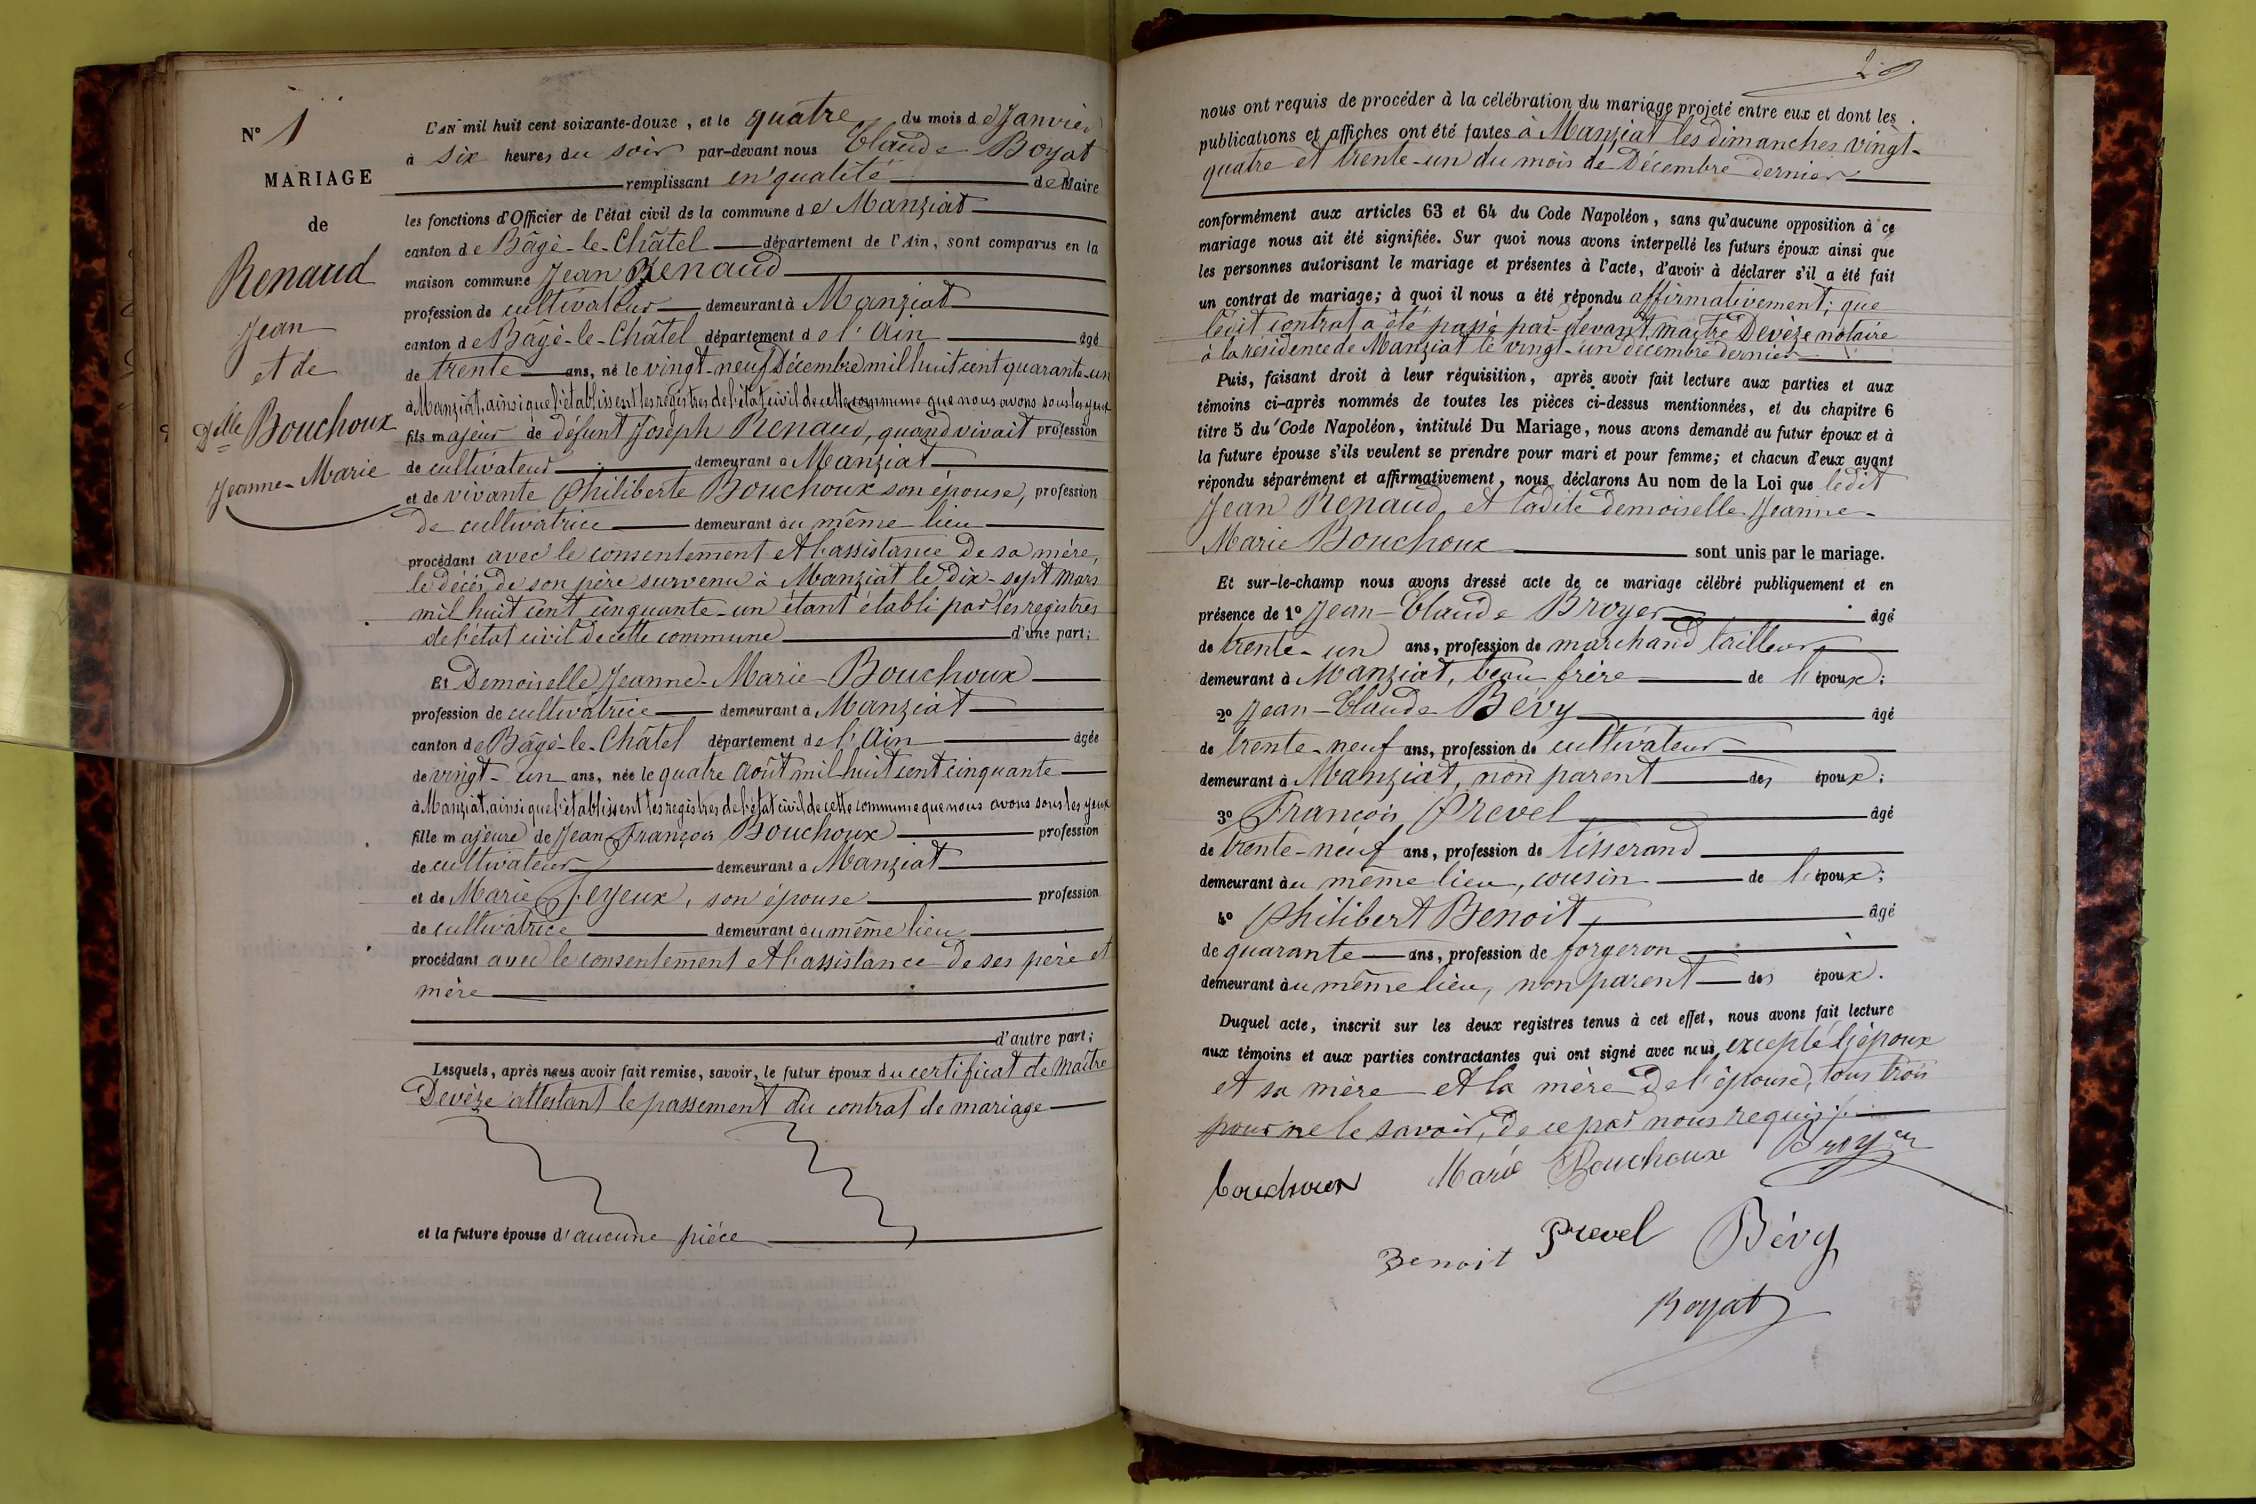 N° 1
MARIAGE
de
Renaud
Jean
et de
Dlle Bouchoux
Jeanne-Marie
L'AN mil huit cent soixante-douze, et le quatre du mois de Janvier
à six heures du soir par-devant nous Claude Boyat
remplissant en qualité de Maire
les fonctions d'Officier de l'état civil de la commune de Manziat
canton de Bâgé-le-Châtel département de l'Ain, sont comparus en la
maison commune Jean Renaud
profession de cultivateur demeurant à Manziat
canton de Bâgé-le-Châtel département de l'Ain âgé
de trente ans, né le vingt-neuf Décembre mil huit cent quarante-un
à Manziat, ainsi que l'établissent les registres de l'état civil de cette commune que nous avons sous les yeux
fils majeur de défunt Joseph Renaud, quand vivait profession
de cultivateur demeurant à Manziat
et de vivante Philiberte Bouchoux son épouse, profession
de cultivatrice demeurant au même lieu
procédant avec le consentement et l'assistance de sa mère,
le décès de son père survenu à Manziat le dix-sept mars
mil huit cent cinquante-un étant établi par les registres
de l'état civil de cette commune d'une part;
Et Demoiselle Jeanne-Marie Bouchoux
profession de cultivatrice demeurant à Manziat
canton de Bâgé-le-Châtel département de l'Ain âgée
de vingt-un ans, née le quatre Août mil huit cent cinquante
à Manziat, ainsi que l'établissent les registres de l'état civil de cette commune que nous avons sous les yeux
fille majeure de Jean François Bouchoux profession
de cultivateur demeurant à Manziat
et de Marie Feyeux, son épouse profession
de cultivatrice demeurant au même lieu
procédant avec le consentement et l'assistance de ses père et
mère
d'autre part;
Lesquels, après nous avoir fait remise, savoir, le futur époux du certificat de Maître
Devèze attestant le passement du contrat de mariage
et la future épouse d'aucune pièce
nous ont requis de procéder à la célébration du mariage projeté entre eux et dont les
publications et affiches ont été faites à Manziat les dimanches vingt-
quatre et trente-un du mois de Décembre dernier
conformément aux articles 63 et 64 du Code Napoléon, sans qu'aucune opposition à ce
mariage nous ait été signifiée. Sur quoi nous avons interpellé les futurs époux ainsi que
les personnes autorisant le mariage et présentes à l'acte, d'avoir à déclarer s'il a été fait
un contrat de mariage; à quoi il nous a été répondu affirmativement; que
ledit contrat a été passé par-devant maître Devèze notaire
à la résidence de Manziat le vingt-un décembre dernier
Puis, faisant droit à leur réquisition, après avoir fait lecture aux parties et aux
témoins ci-après nommés de toutes les pièces ci-dessus mentionnées, et du chapitre 6
titre 5 du Code Napoléon, intitulé Du Mariage, nous avons demandé au futur époux et à
la future épouse s'ils veulent se prendre pour mari et pour femme; et chacun d'eux ayant
répondu séparément et affirmativement, nous déclarons Au nom de la Loi que ledit
Jean Renaud et ladite demoiselle Jeanne-
Marie Bouchoux sont unis par le mariage.
Et sur-le-champ nous avons dressé acte de ce mariage célébré publiquement et en
présence de 1° Jean-Claude Broyer âgé
de trente-un ans, profession de marchand tailleur
demeurant à Manziat, beau frère de l'époux;
2° Jean-Claude Bévy âgé
de trente-neuf ans, profession de cultivateur
demeurant à Manziat, non parent des époux;
3° François Prevel âgé
de trente-neuf ans, profession de tisserand
demeurant au même lieu, cousin de l'époux;
4° Philibert Benoit, âgé
de quarante ans, profession de forgeron
demeurant au même lieu, non parent des époux.
Duquel acte, inscrit sur les deux registres tenus à cet effet, nous avons fait lecture
aux témoins et aux parties contractantes qui ont signé avec nous, excepté l'époux
et sa mère et la mère de l'épouse, tous trois
pour ne le savoir, de ce par nous requis
Bouchoux Marie Bouchoux Broyer
Benoit Prevel Bévy
Boyat